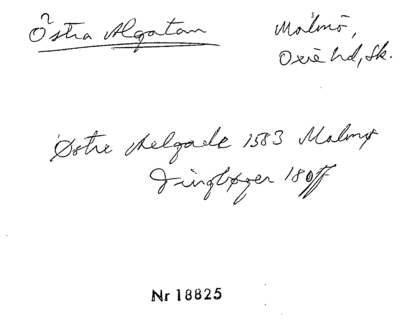 Östra Algatan
Malmö,
Oxie hd, Sk.
Østre Aelgade 1583 Malmø
Tingbøger 180ff
Nr 18825